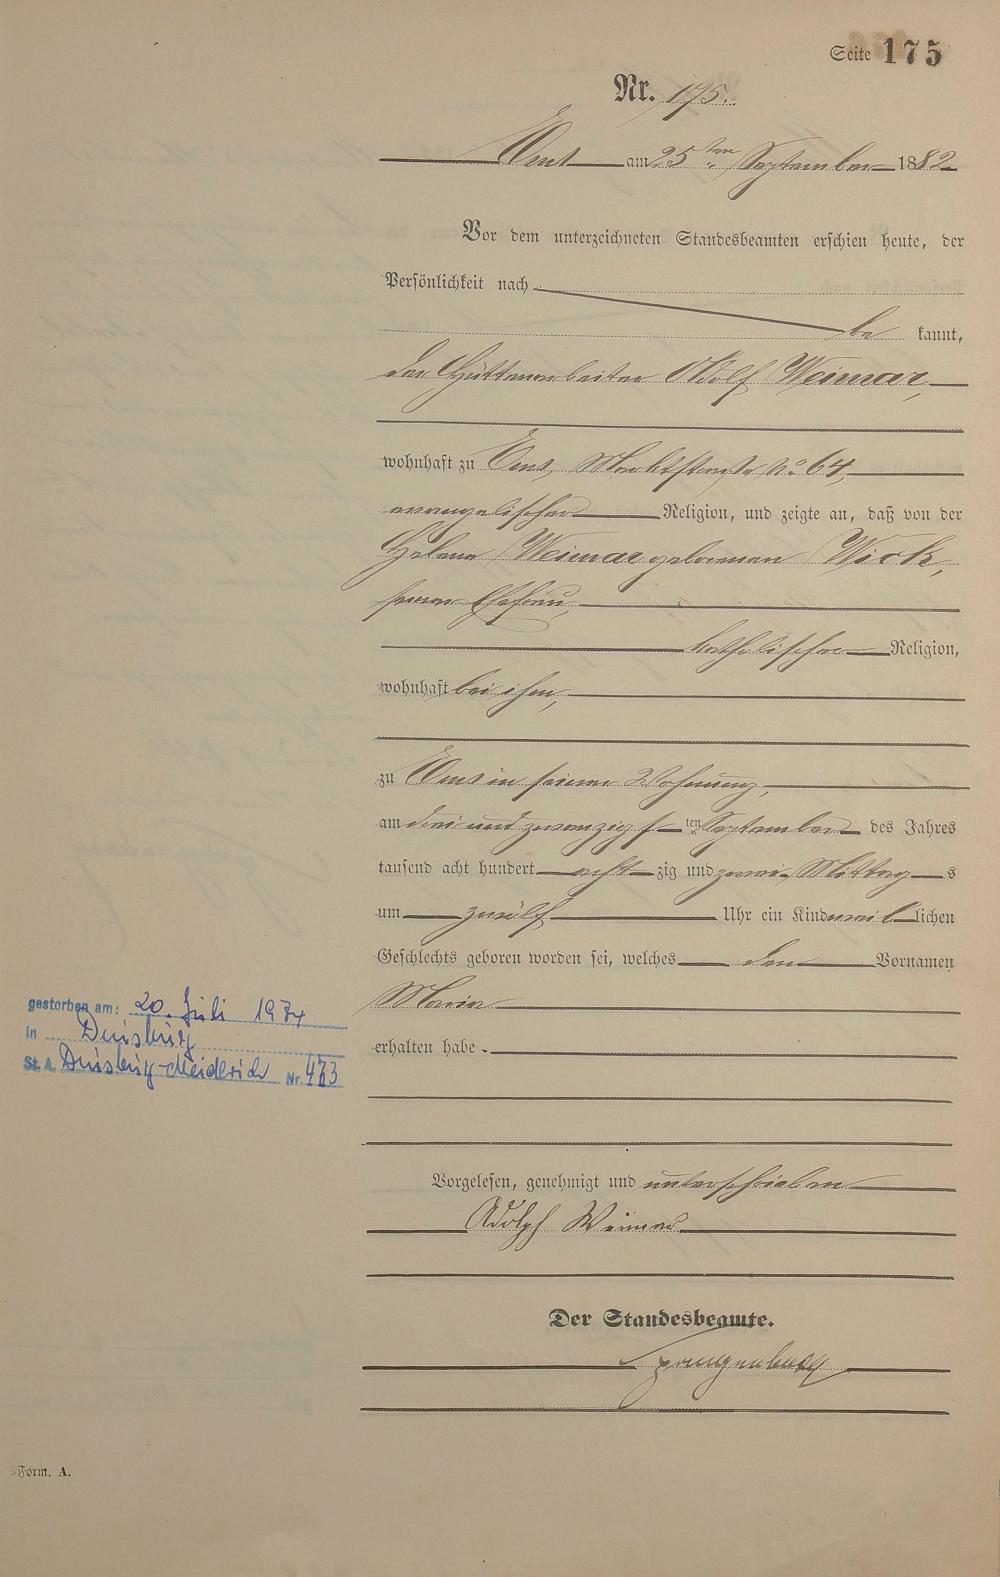 Seite 175
Nr. 175.
Ems am 25 ten September 1882
Vor dem unterzeichneten Standesbeamten erschien heute, der
Persönlichkeit nach
be kannt,
der Hüttenarbeiter Adolf Weimar,
wohnhaft zu Ems, Marktstraße No 64,
evangelischer Religion, und zeigte an, daß von der
Helena Weimar geborenen Wick,
seiner Ehefrau,
katholischer Religion,
wohnhaft bei ihm,
zu Ems in seiner Wohnung,
am drei und zwanzigs ten September des Jahres
tausend acht hundert acht zig und zwei Mittag s
um zwölf Uhr ein Kind weib lichen
Geschlechts geboren worden sei, welches den Vornamen
Maria
erhalten habe.
gestorben am: 20. Juli 1974
in Duisburg
St. A. Duisburg-Meiderich Nr. 473
Vorgelesen, genehmigt und unterschrieben
Adolph Weimar
Der Standesbeamte.
Spangenberg
Form. A.